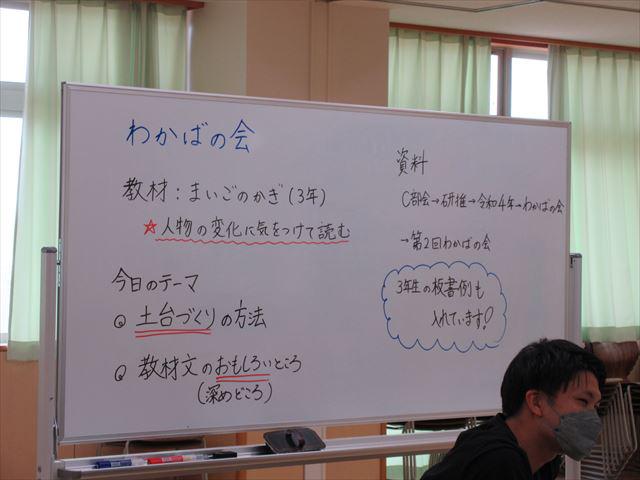 わかばの会
教材：まいごのかぎ（3年）
☆人物の変化に気をつけて読む
今日のテーマ
土台づくりの方法
教材文のおもしろいところ
（深めどころ）
資料
C部会→研推→令和4年→わかばの会
→第2回わかばの会
3年生の板書例も
入れています！